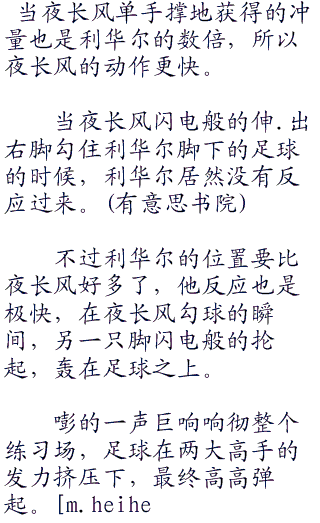 当夜长风单手撑地获得的冲
量也是利华尔的数倍，所以
夜长风的动作更快。
当夜长风闪电般的伸.出
右脚勾住利华尔脚下的足球
的时候，利华尔居然没有反
应过来。(有意思书院)
不过利华尔的位置要比
夜长风好多了，他反应也是
极快，在夜长风勾球的瞬
间，另一只脚闪电般的抡
起，轰在足球之上。
嘭的一声巨响响彻整个
练习场，足球在两大高手的
发力挤压下，最终高高弹
起。[m.heihe